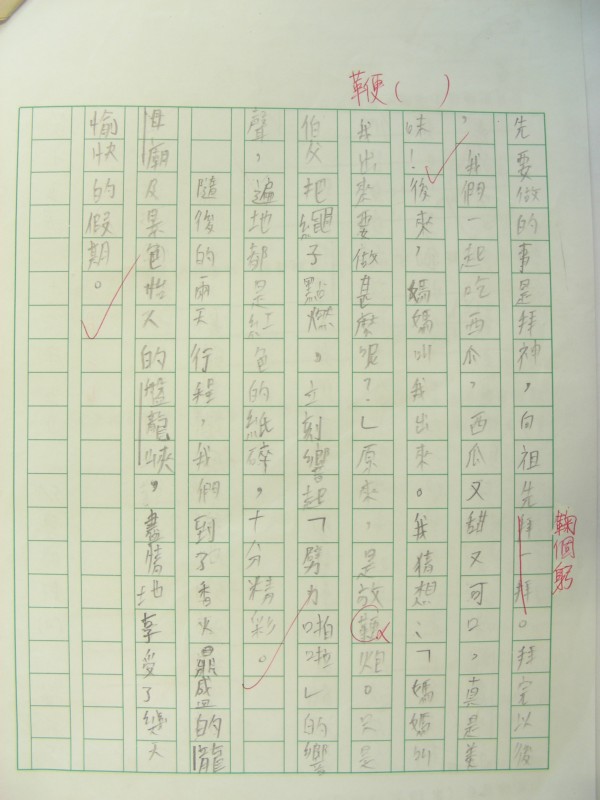 鞭( )
先要做的事是拜神，向祖先拜一拜。拜完以後
鞠個躬
，我們一起吃西瓜，西瓜又甜又可口，真是美
味！後來，媽媽叫我出來。我猜想：「媽媽叫
我出來要做甚麼呢？」原來，是放炮。只是
伯父把繩子點燃，立刻響起「劈力啪啦」的響
聲，遍地都是紅色的紙碎，十分精彩。
隨後的兩天行程，我們到了香火鼎盛的龍
母廟及景色怡人的盤龍峽，盡情地享受了幾天
愉快的假期。